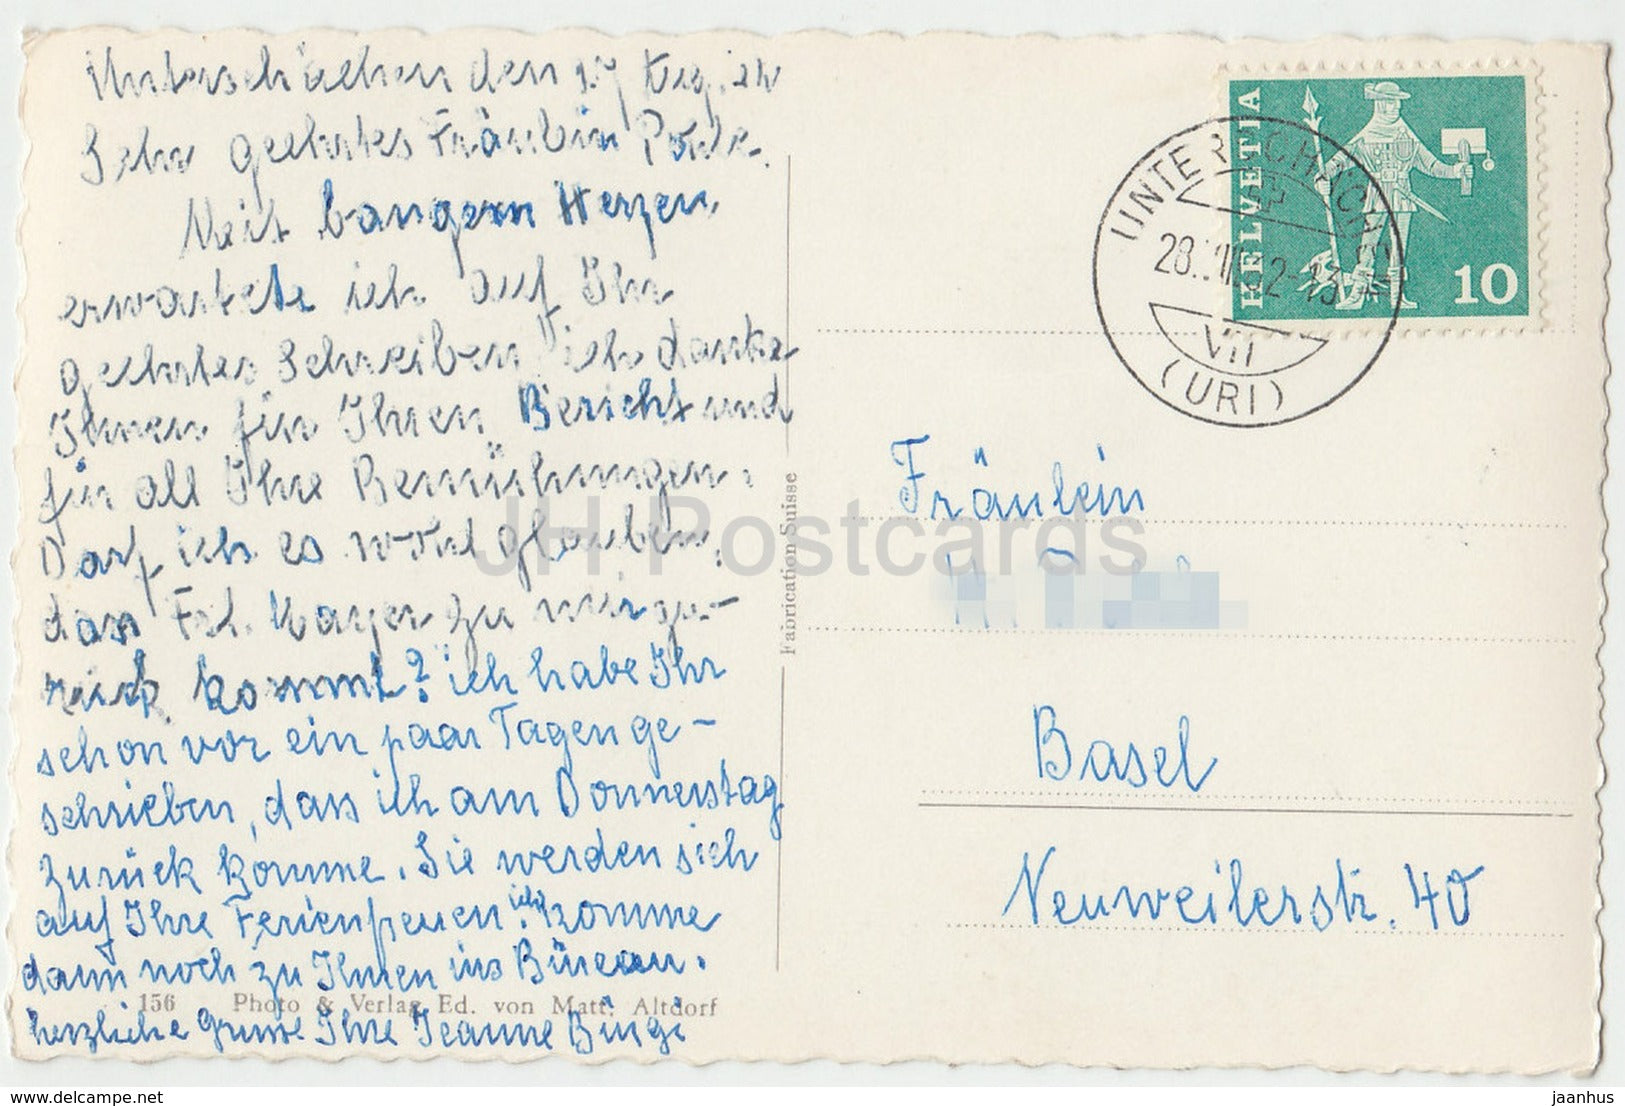 Unterschächen den
Sehr geehrtes Fräulein
Mit bangem Herzen,
erwartete ich auf Ihr
geehrtes Schreiben, ich danke
Ihnen für Ihren Bericht und
für all Ihre Bemühungen.
Darf ich es wohl glauben,
dass Frl. Mayer zu mir zu-
rück kommt? ich habe Ihr
schon vor ein paar Tagen ge-
schrieben, dass ich am Donnerstag
zurück komme. Sie werden sich
auf Ihre Ferien freuen. ich komme
dann noch zu Ihnen ins Büreau.
herzliche Grüsse Ihre Jeanne
156 Photo & Verlag Ed. von Matt, Altdorf
Fabrication Suisse
HELVETIA
10
UNTERSCHÄCHEN
28.
VII
(URI)
Fräulein
Basel
Neuweilerstr. 40
JH Postcards
hippostcard.com
jaanhus